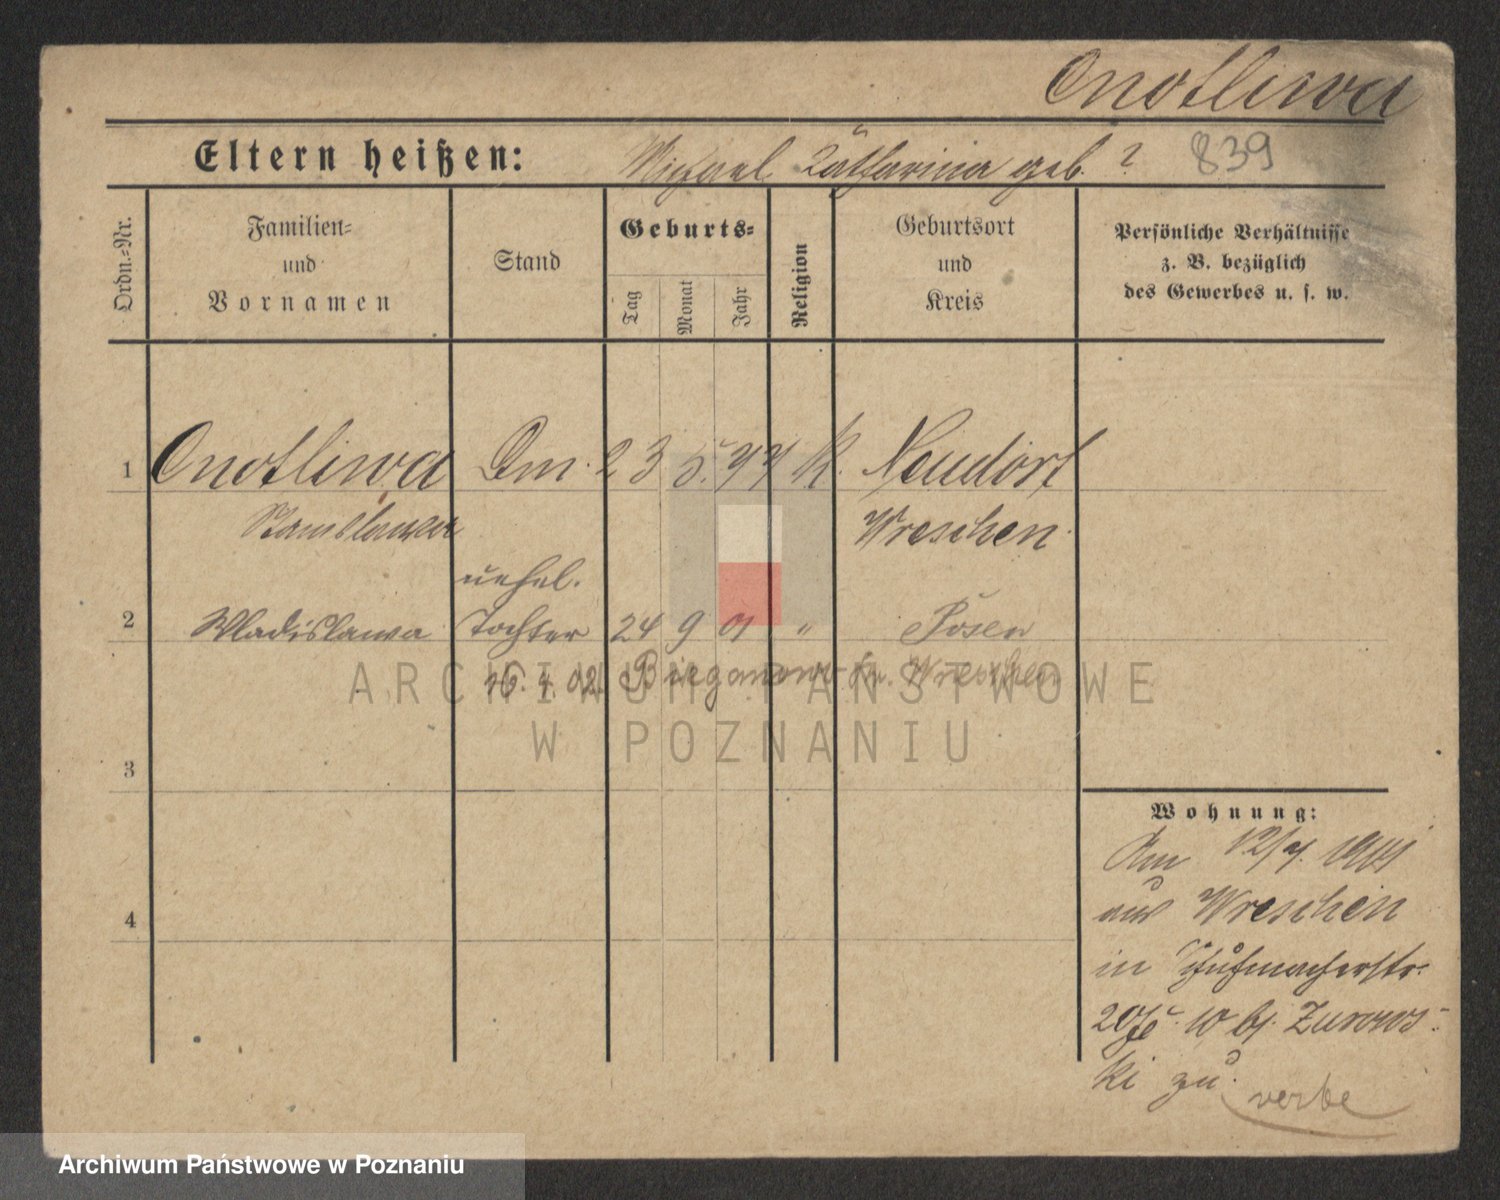 Cnotliwa
Eltern heißen: Michael Katharina geb. ? 839
Ordn.-Nr.
Familien-
und
Vornamen
Stand
Geburts-
Tag
Monat
Jahr
Religion
Geburtsort
und
Kreis
Persönliche Verhältnisse
z. B. bezüglich
des Gewerbes u. s. w.
1 Cnotliwa 23 5. 77 K. Neudorf
Stanislawa Wreschen
unehel.
2 Wladislawa Tochter 24 9 01 " Posen
16. 4. 02. Bieganowo Kr. Wreschen
3
4
Wohnung:
Am 12/7. 1901
aus Wreschen
in Schuhmacherstr.
20 10 bj. Zurows-
ki zu.
ARCHIWUM PAŃSTWOWE
W POZNANIU
Archiwum Państwowe w Poznaniu